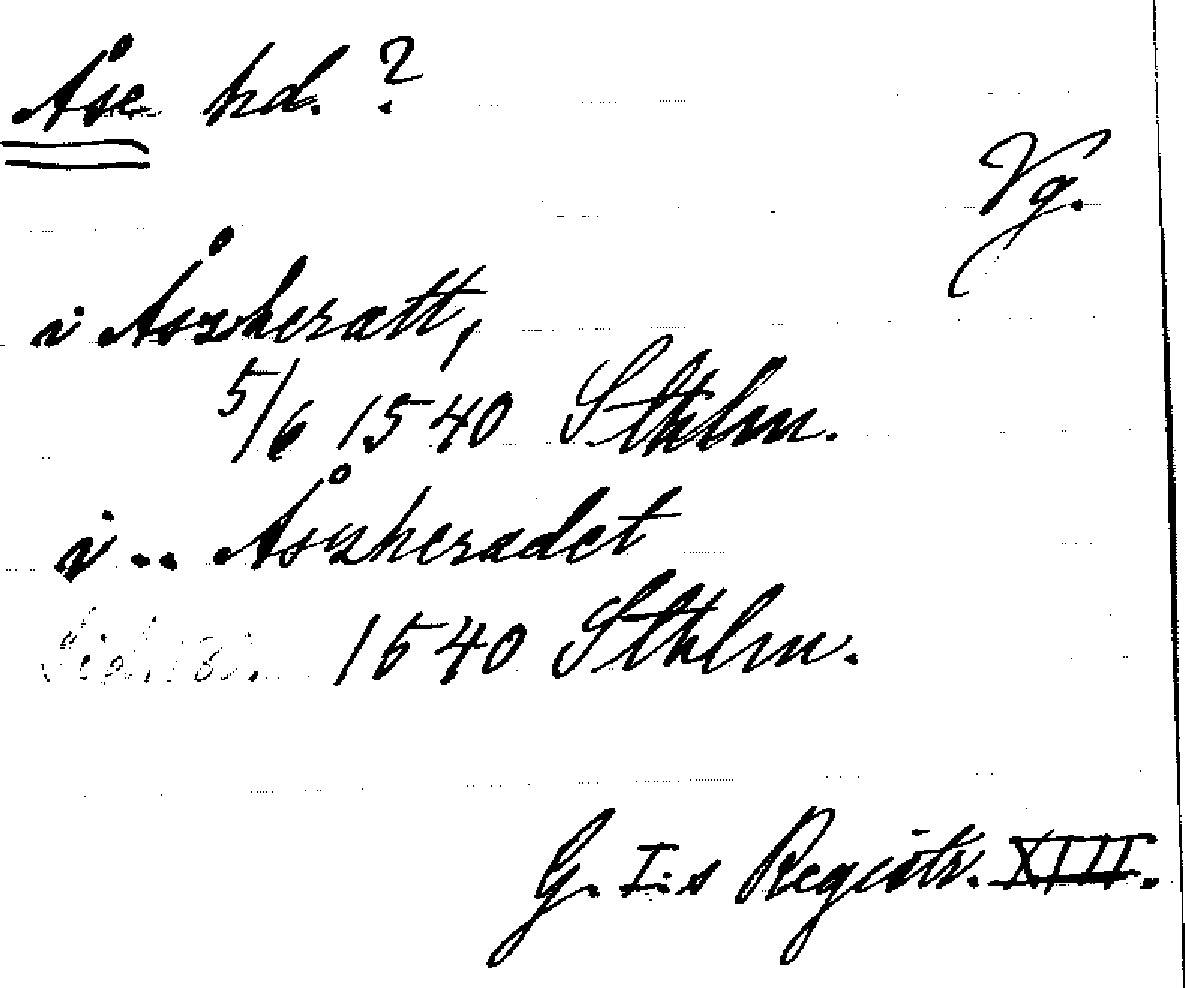 Åse hd. ?
Vg.
i Åszheratt,
5/6 1540 Sthlm.
i .. Åszheradet
1540 Sthlm.
G. I:s Registr. XIII.